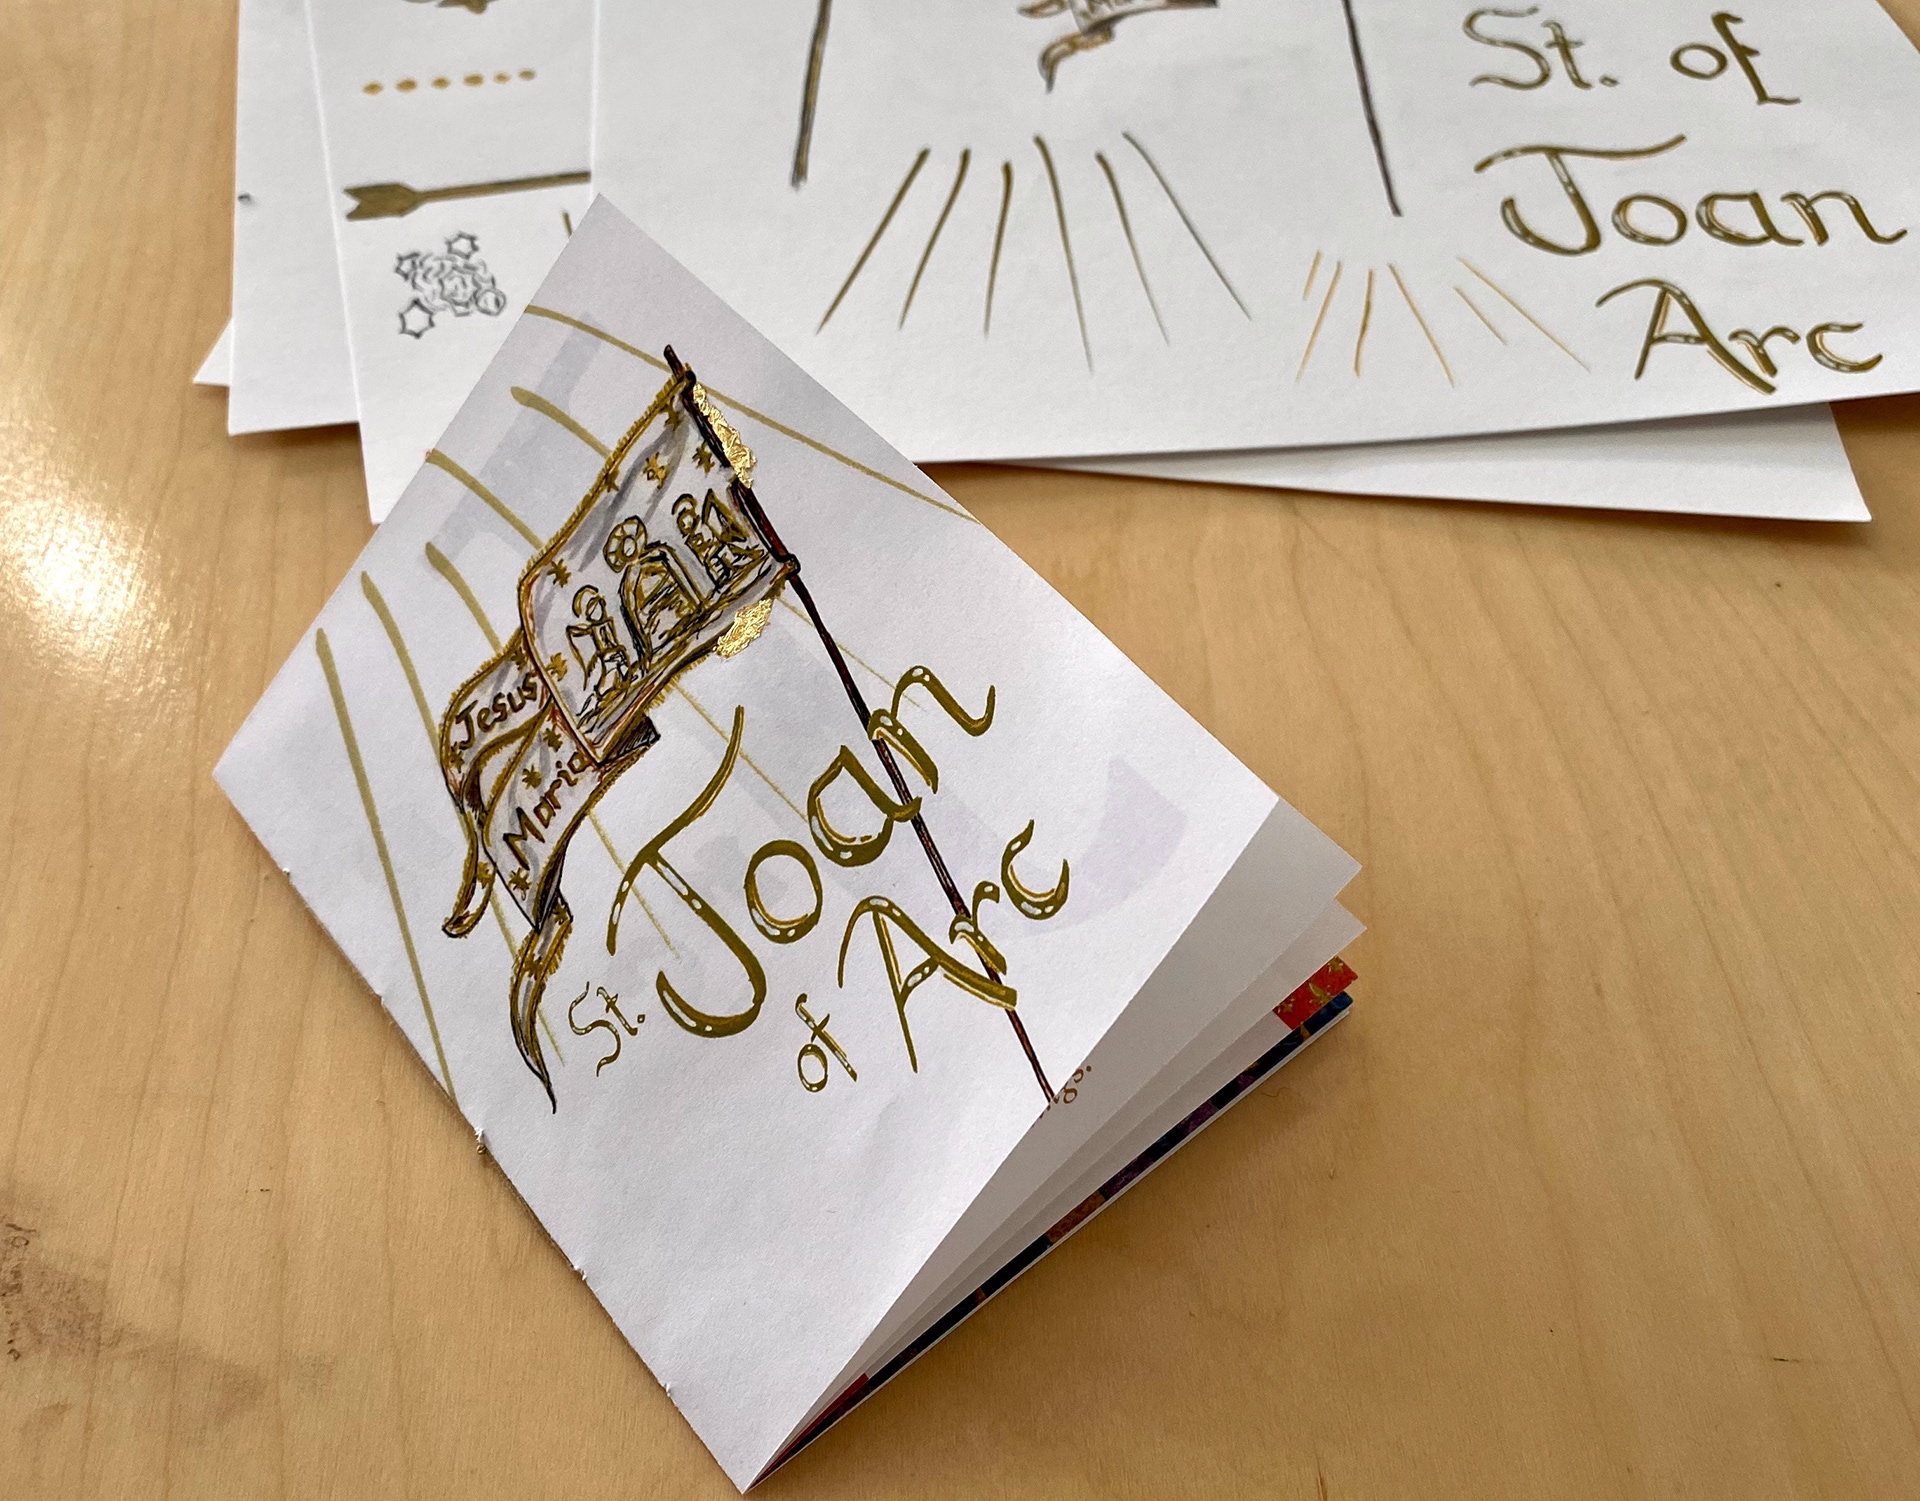 St. of
Joan
Arc
Jesus
Maria
St. Joan
of Arc